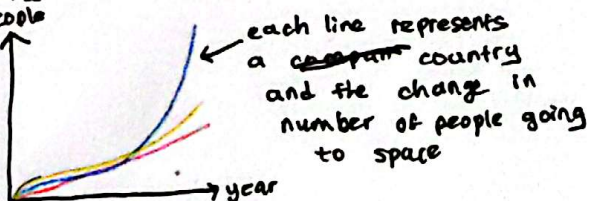 people
each line represents
a country
and the change in
number of people going
to space
year